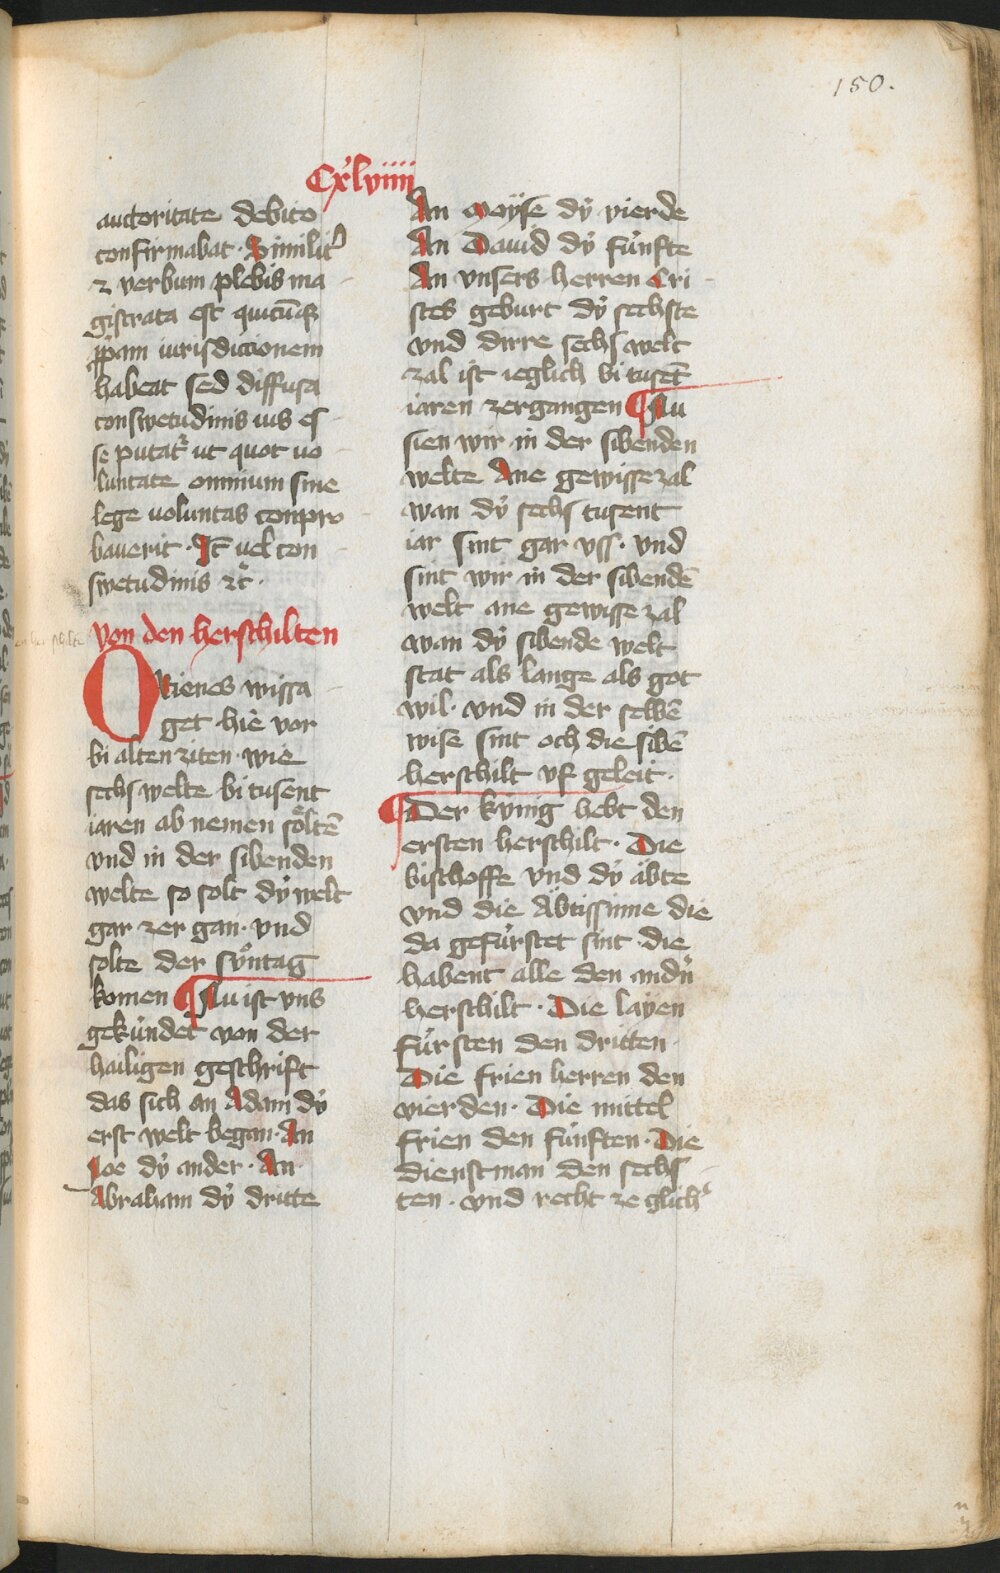 150.
Cxlviiii
auctoritate debito
confirmabat · Similit̓
⁊ verbum plebis ma
gistrata est quicūqꝫ
ꝓpam iurisdiccionem
habeat sed diffusa
conswetudinis ius es
se putat̓ ut quot uo
luntate omnium sine
lege uoluntas conpro
bauerit · It̄ uel con
swetudinis ⁊c̓ ·
von den herschilten
Orienes wissa
get hie vor
bi alten ziten · wie
sechs welte bi tusent
iaren ab nemen söltē
vnd in der sibenden
welte so solt dy̓ welt
gar zer gan · vnd
solte der sy̓ntag
komen ¶ Nu ist vns
gekúndet von der
hailigen geschrift
das sich an Adam dy̓
erst welt began · An
Noe dy̓ ander · An
Abraham dy̓ dritte
An Moÿse dy̓ vierde
An Dauid dy̓ fúnfte
An vnsers herren Cri
stes geburt dy̓ sechste
vnd dirre sechs welt
zal ist ieglich bi tusēt
iaren zergangen ¶ Nu
sien wir in der sibenden
welte Ane gewisse zal
wan dy̓ sechs tusent
iar sint gar vss · vnd
sint wir in der sibendē
welt ane gewisse zal
wan dy̓ sibende welt
stat als lange als got
wil · vnd in der selbē
wise sint och die sibē
herschilt vf geleit ·
¶ Der kúnig hebt den
ersten herschilt · Die
bischoffe vnd dy̓ äbte
vnd die Äbtissinne die
da gefúrstet sint · die
habent alle den andn̓
herschilt · Die layen
fúrsten den dritten
Die frien herren den
vierden · Die mittel
frien den fúnften · Die
dienstman den sechs
ten · vnd recht ze glich̓